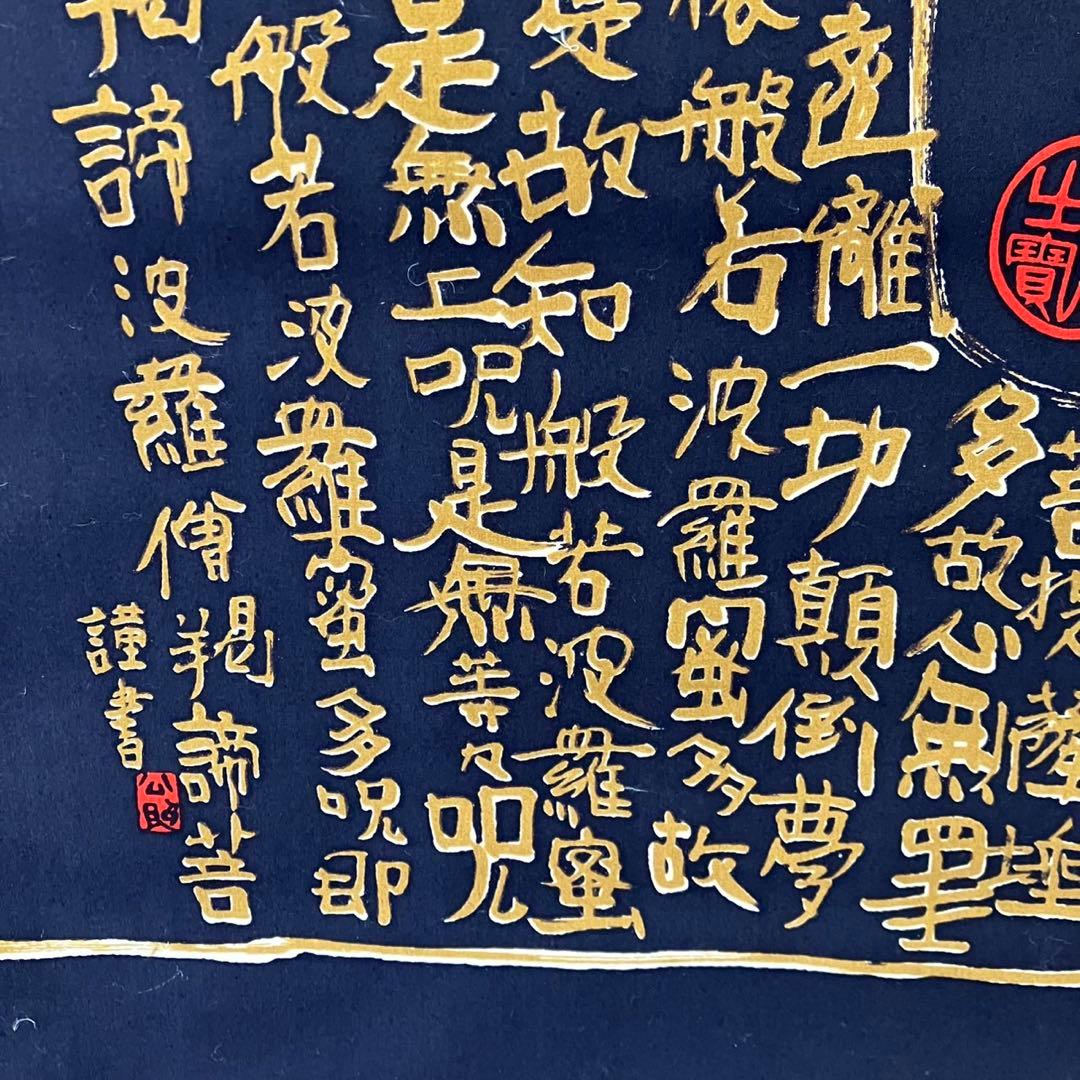 菩提薩埵
多故心無罣
遠離一切顛倒夢
般若波羅蜜多故
提故知般若波羅蜜
是無上呪是無等々呪
般若波羅蜜多呪即
諦波羅僧羯諦菩
謹書